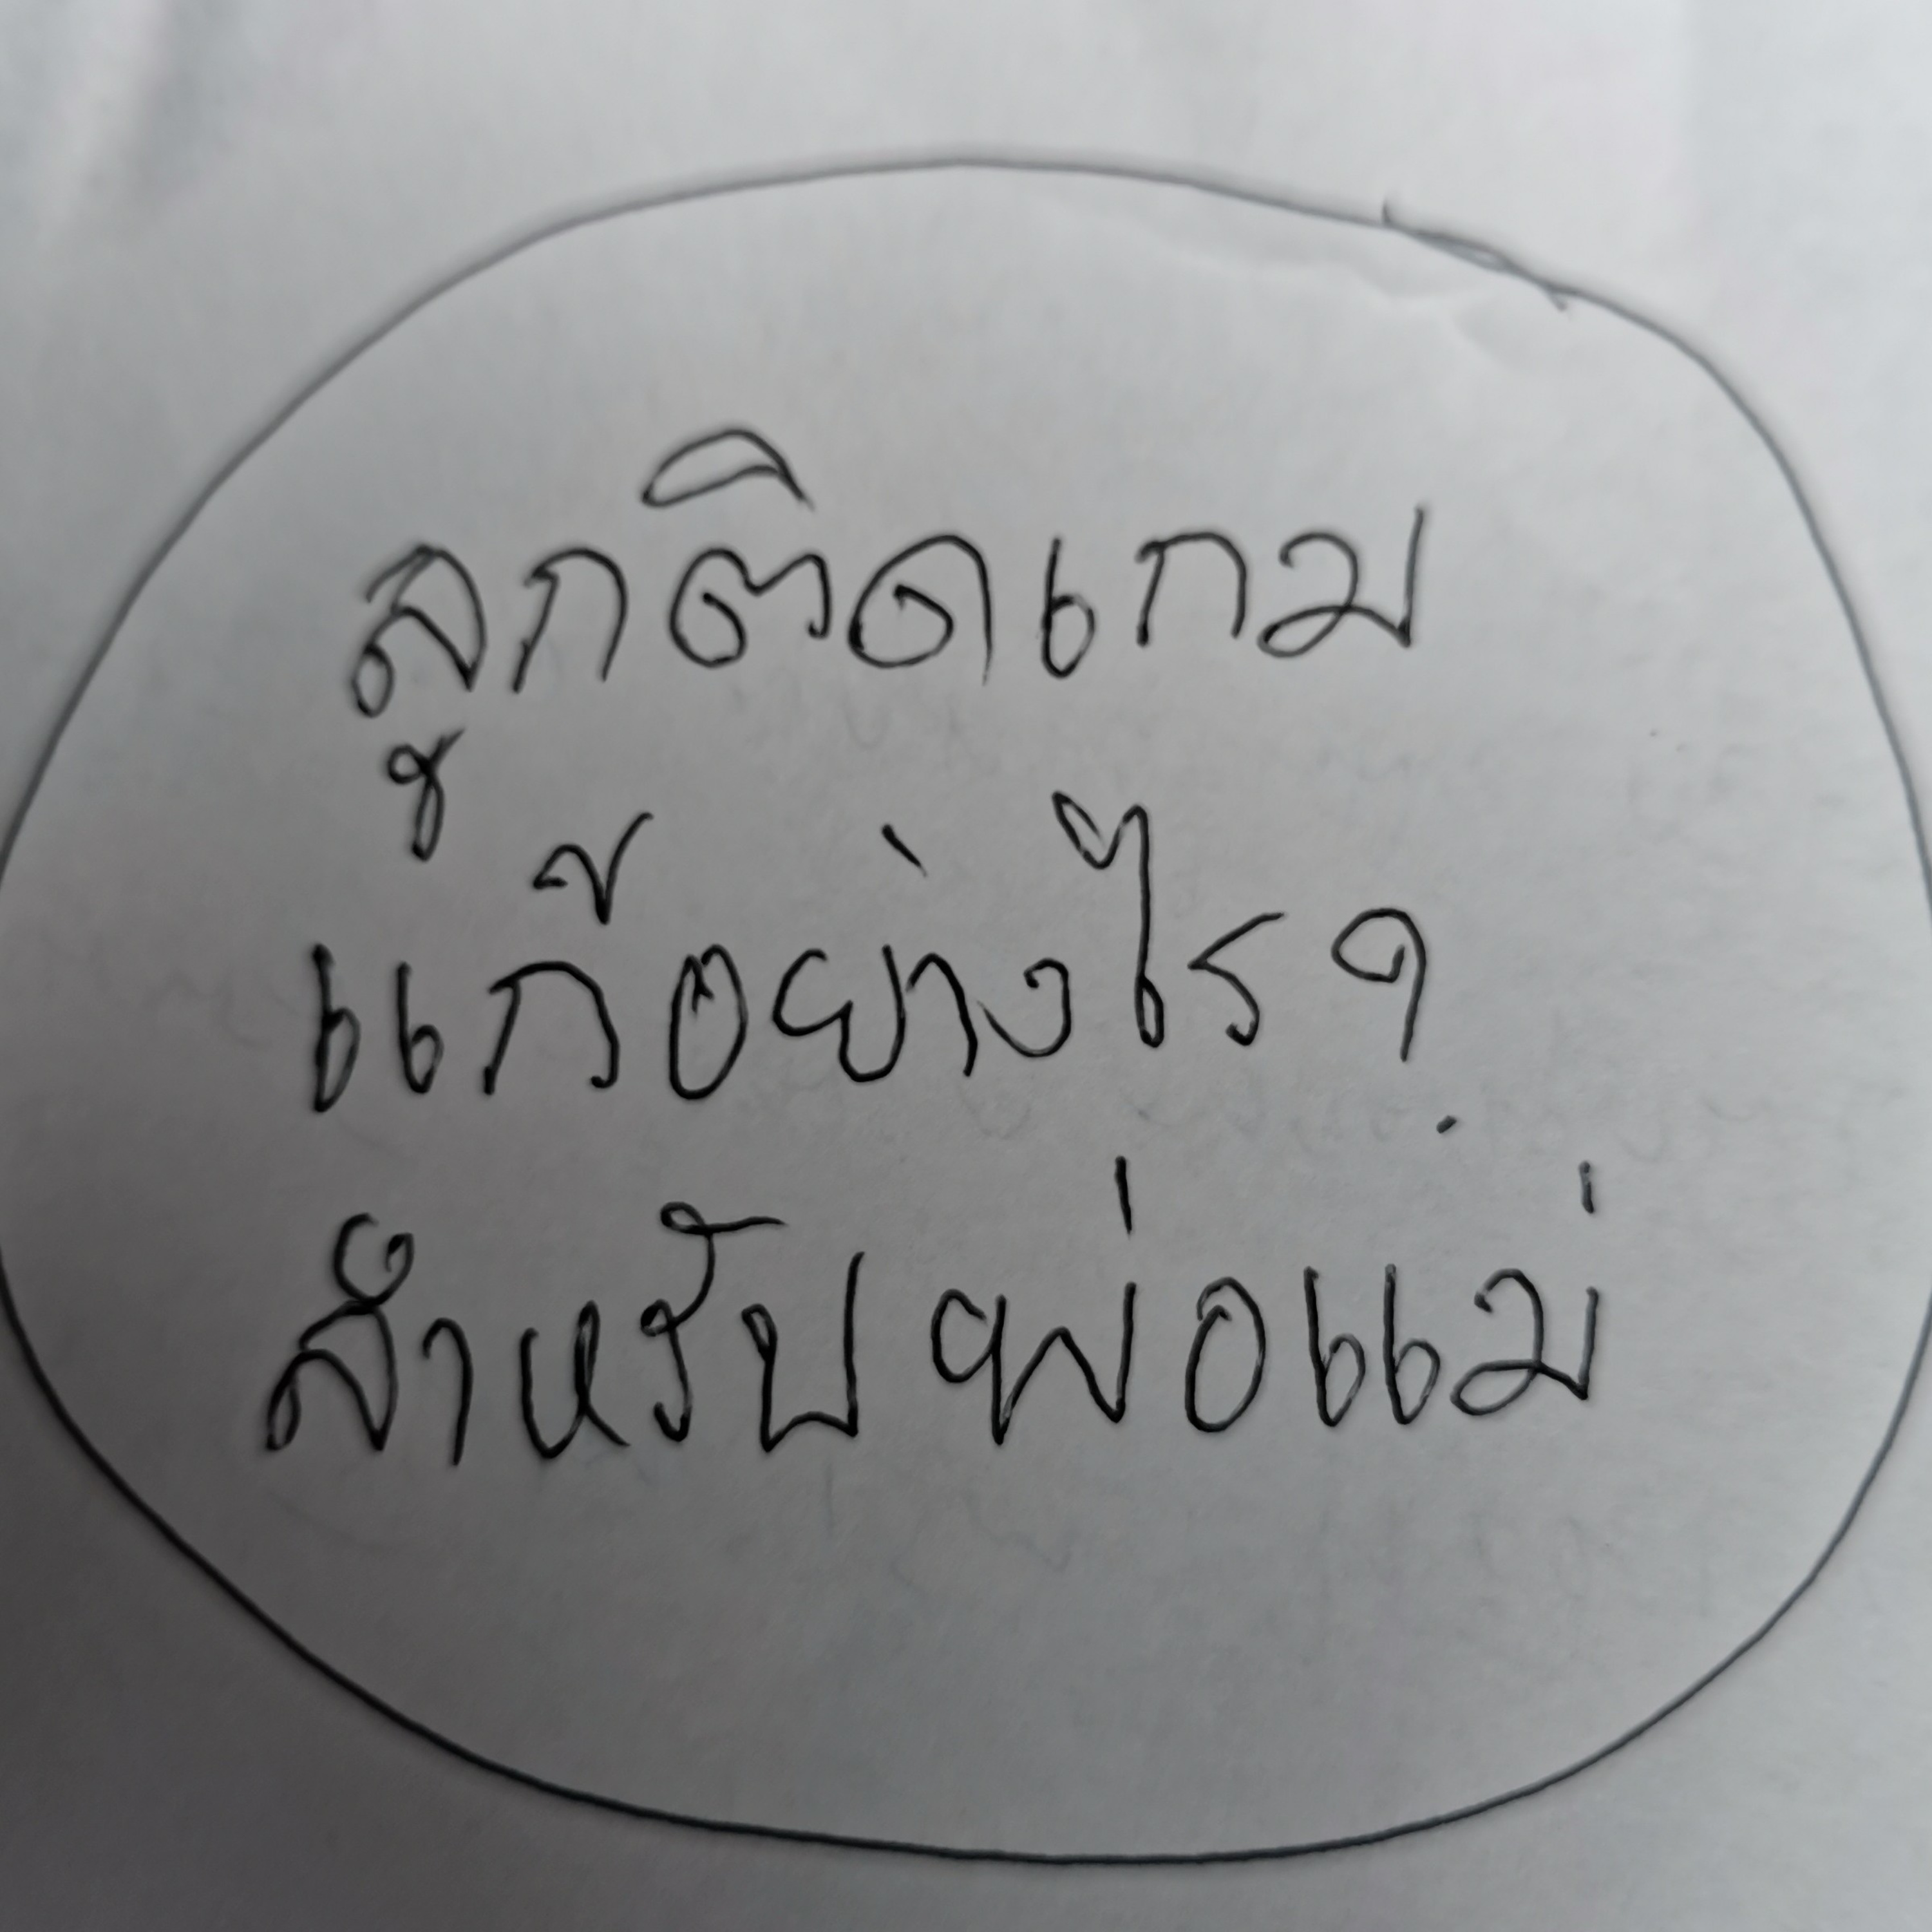 ลูกติดเกม
แก้อย่างไร?
สำหรับพ่อแม่